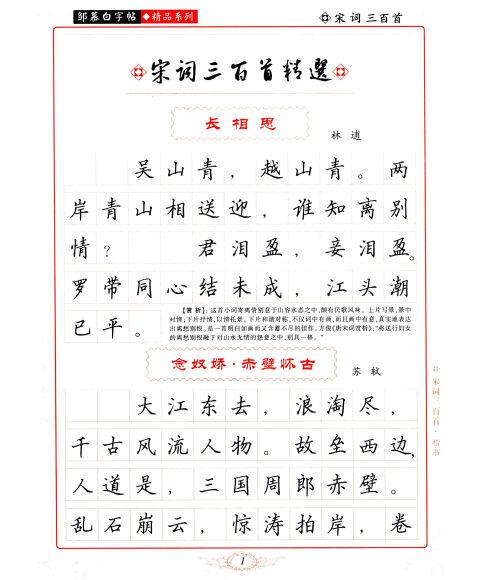 邹慕白字帖 ◆精品系列
宋词三百首
宋词三百首精選
长相思
林逋
吴山青，越山青。两
岸青山相送迎，谁知离别
情？ 君泪盈，妾泪盈。
罗带同心结未成，江头潮
已平。
【赏析】：这首小词寄离情别意于山容水态之中，颇有民歌风味。上片写景，景中
衬情；下片抒情，以情托景。上下片和谐对称，不仅词中有画，而且画中有意，真实地表达
出离愁别恨，是一首明白如画而又含蓄不尽的佳作。方俊《唐宋词赏析》："将送行妇女
的离愁别恨融于对山水无情的怨意之中，别具一格。"
念奴娇·赤壁怀古
苏轼
大江东去，浪淘尽，
千古风流人物。故垒西边，
人道是，三国周郎赤壁。
乱石崩云，惊涛拍岸，卷
宋词 百首·楷书
1